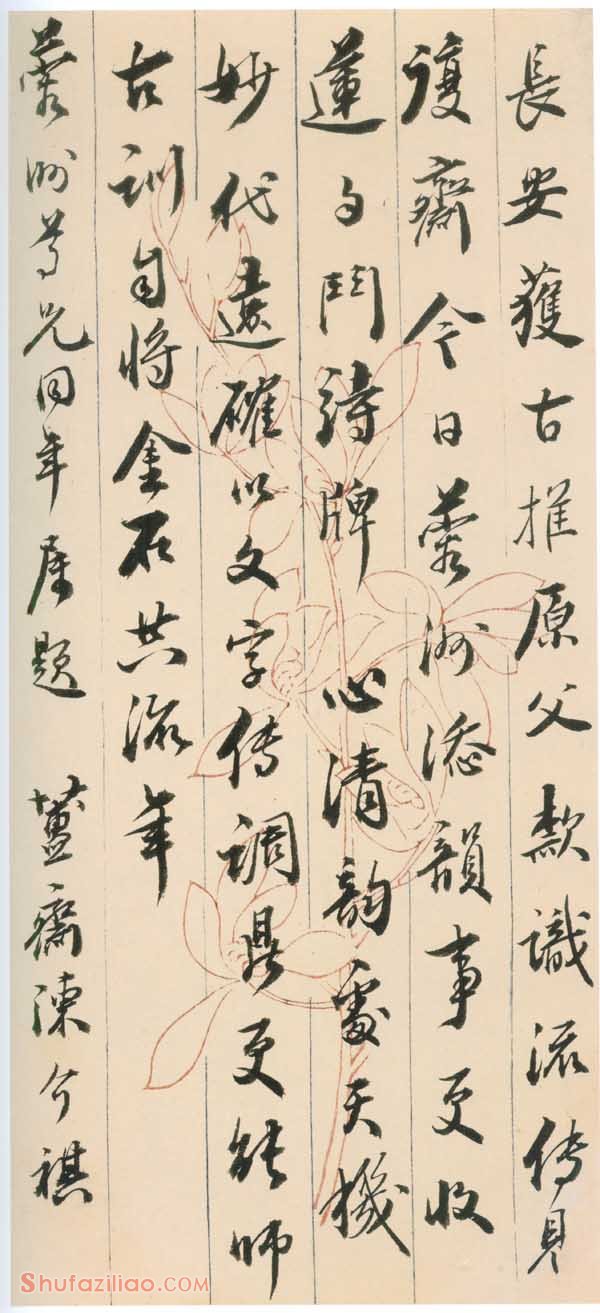 長安獲古推原父款識流傳見
復齋今日蓉洲添韻事更收
蓮勺鬥詩牌心清韵處天機
妙代遠確以文字傳調鼎更能師
古訓自將金石共流年
蓉洲尊兄同年屬題 簠齋陳介祺
Shufaziliao.COM